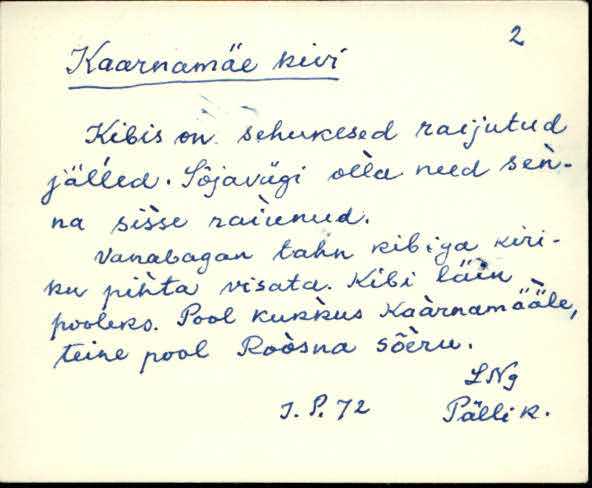 2
Kaarnamäe kivi
Kibis on sehukesed raijutud
jäĺled. Sõjavägi olla need sen̄-
na sis̀se raiùnud.
Vanabagan tahn kibiga kiri-
ku pih̀ta visata. Kibi läìn
pooleks. Pool kuk̀kus Kaàrnamääle,
teine pool Roòsna sõèru.
LNg
J. P. 72 Pälli k.